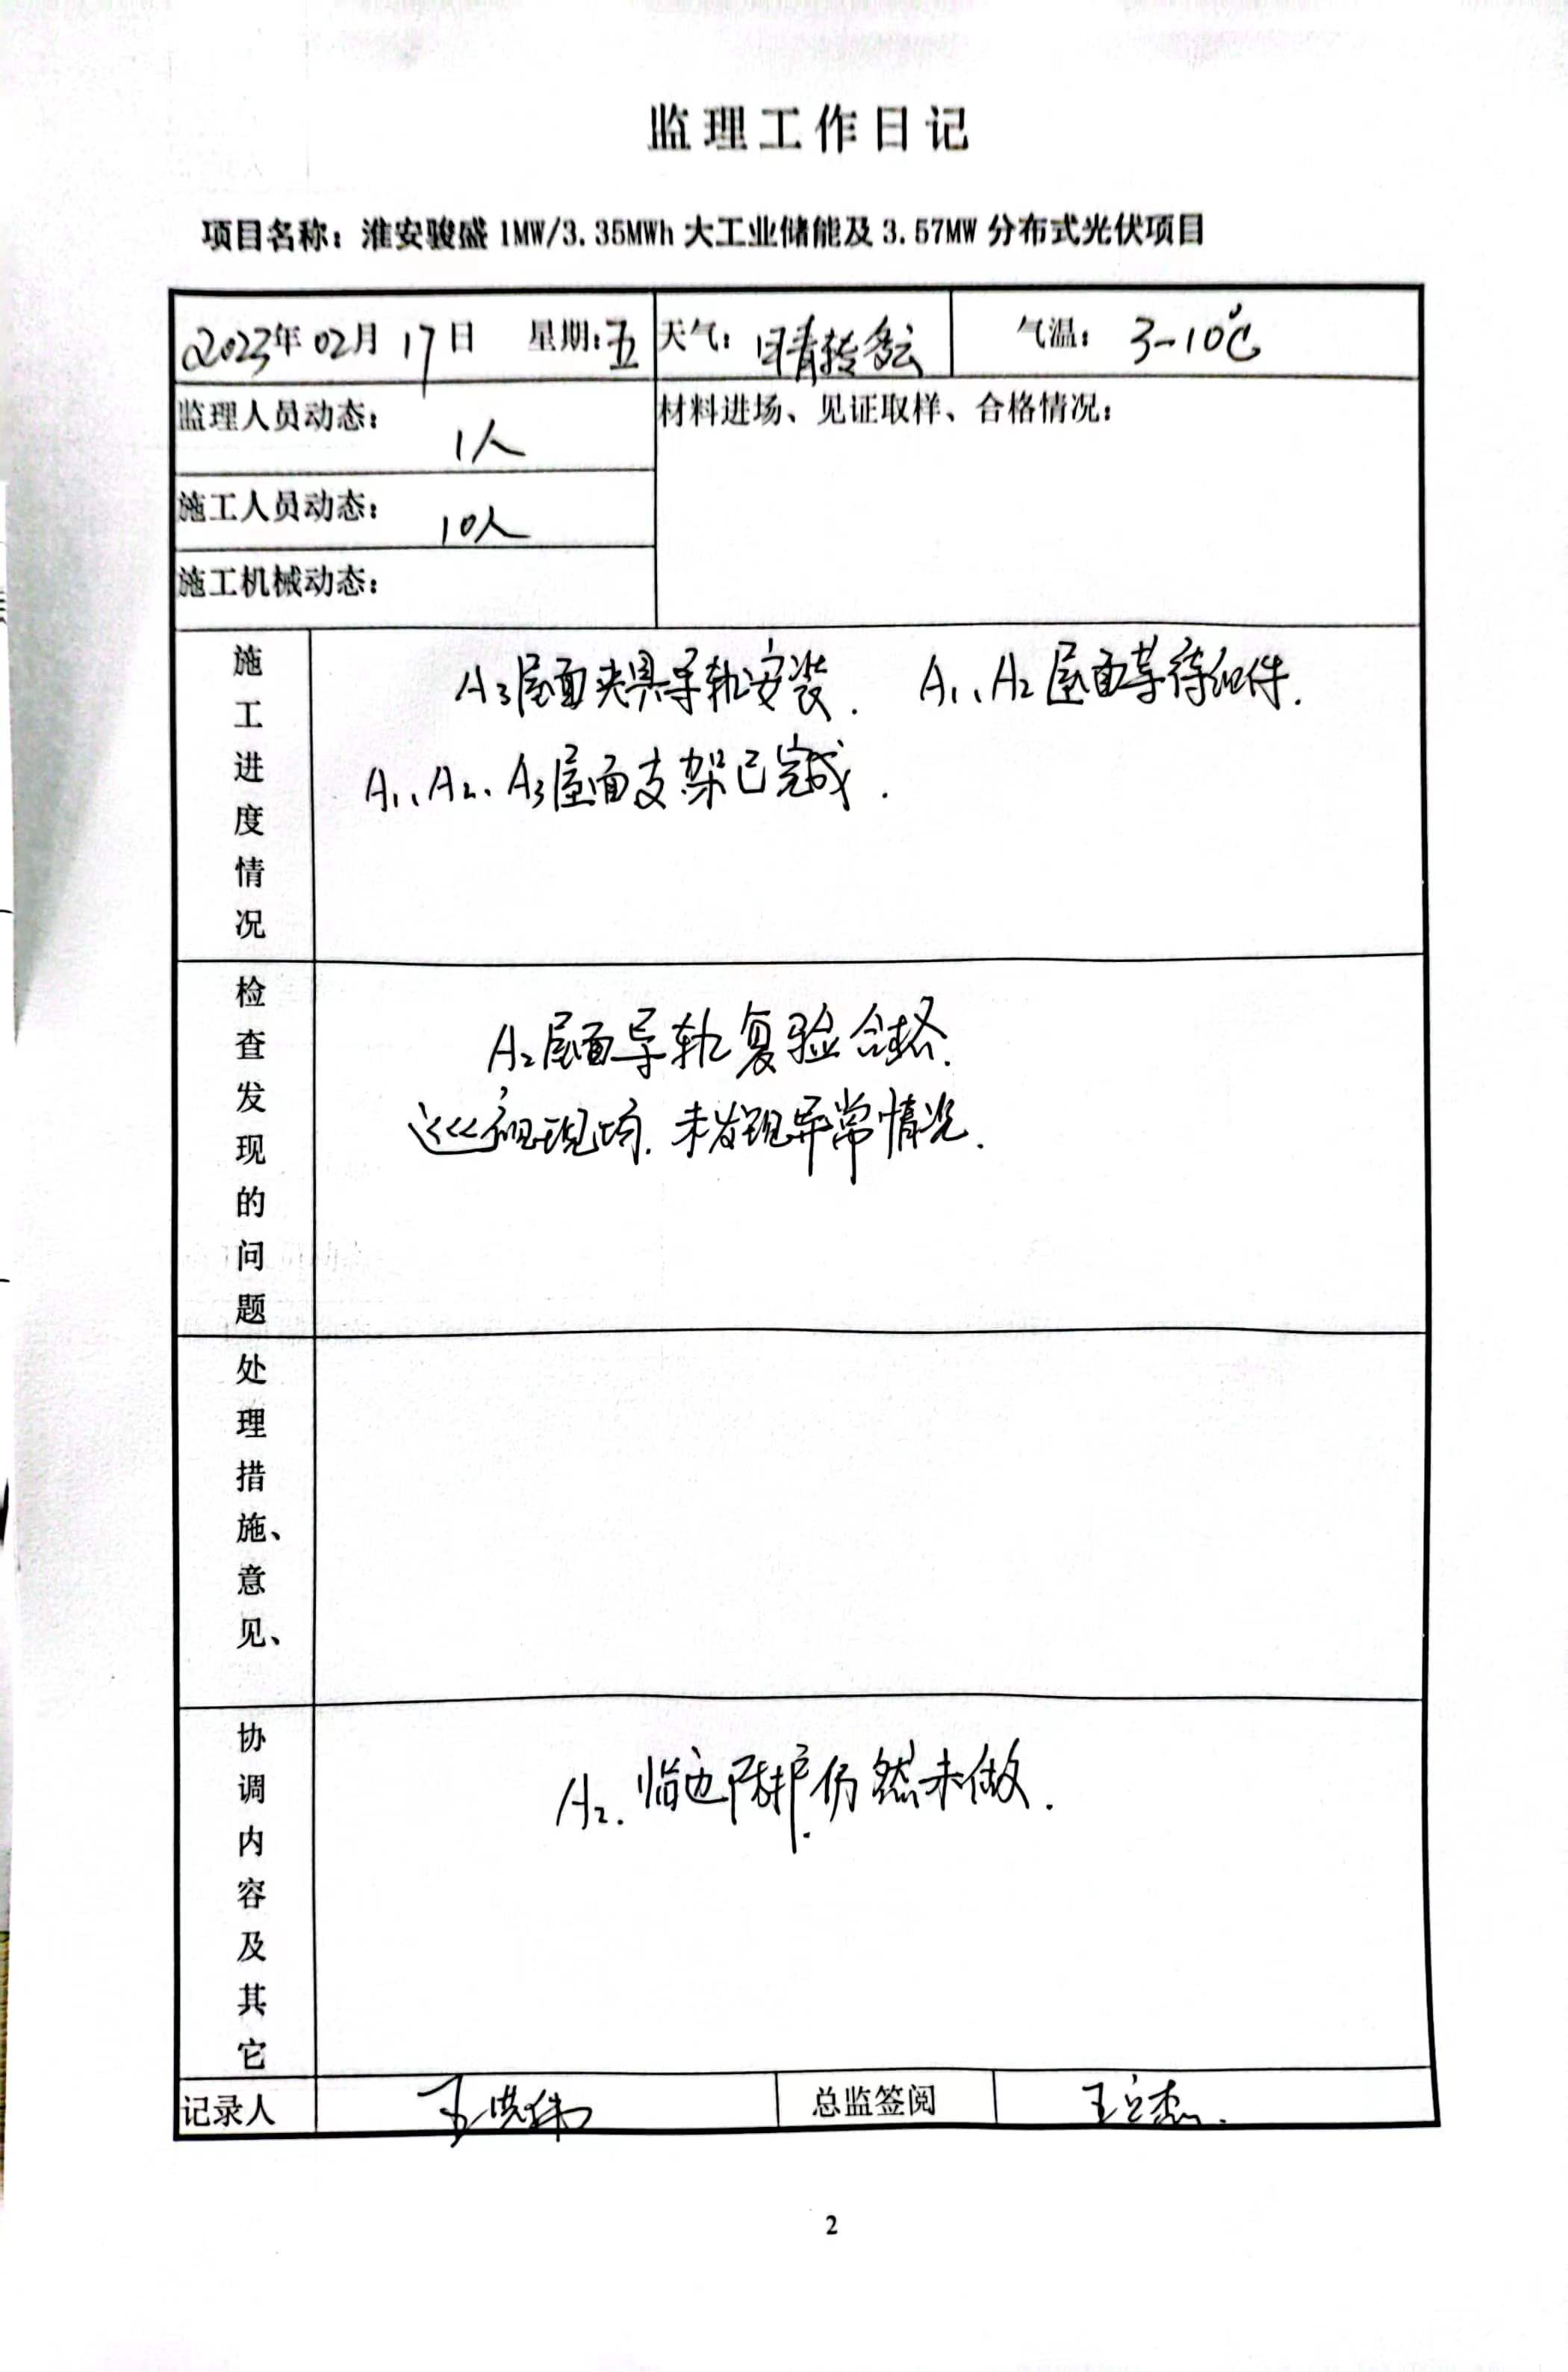 监理工作日记
项目名称：淮安骏盛 1MW/3.35MWh 大工业储能及 3.57MW 分布式光伏项目
2023年 02月 17日 星期：五 天气：晴转多云 气温：3-10℃
监理人员动态： 1人
材料进场、见证取样、合格情况：
施工人员动态： 10人
施工机械动态：
施工进度情况
A3屋面夹具导轨安装. A1、A2屋面等待组件.
A1、A2、A3屋面支架已完成.
检查发现的问题
A2屋面导轨复验合格.
巡视现场.未发现异常情况.
处理措施、意见、
协调内容及其它
A2.临边防护仍然未做.
记录人 王洪伟 总监签阅 王立杰
2